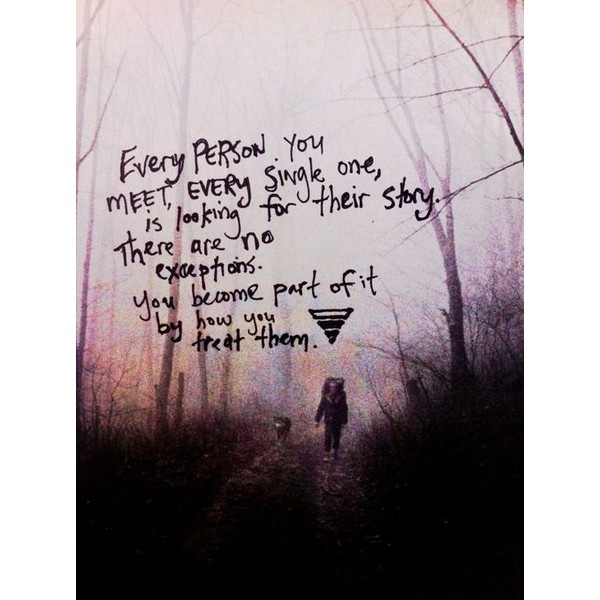 Every PERSON you
MEET, EVERY Single one,
is looking for their story.
There are no
exceptions.
You become part of it
by how you
treat them.